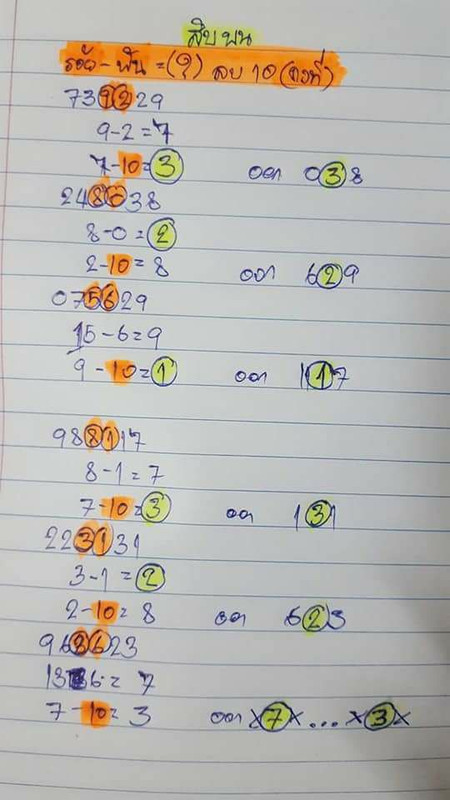 สิบบน
ร้อย - พัน = (?) ลบ 10 (คงที่)
739229
9-2 = 7
7-10 = 3 ออก 038
248038
8-0 = 2
2-10 = 8 ออก 629
075629
15-6 = 9
9 - 10 = 1 ออก 117
988117
8-1 = 7
7-10 = 3 ออก 131
223131
3-1 = 2
2-10 = 8 ออก 623
968623
7-10 = 3 ออก x7x...x3x